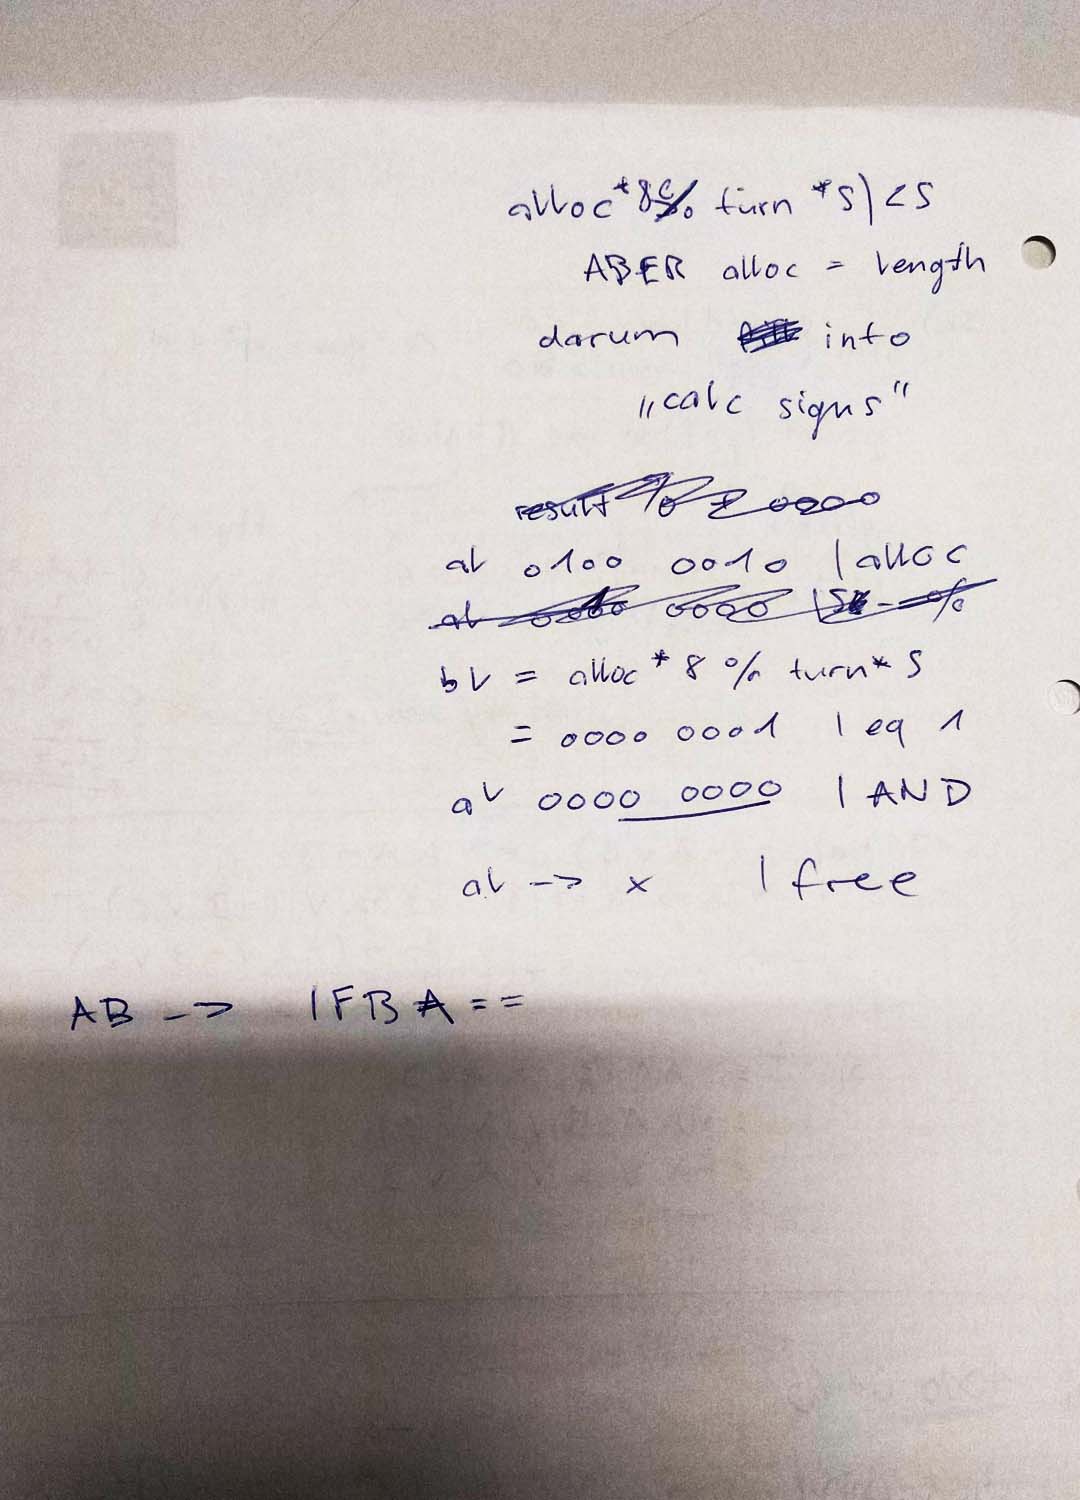 alloc*8% turn *5) < 5
ABER alloc = length
darum into
„calc signs"
result % 20000
al 0100 0010 | alloc
al 0000 0000
bl = alloc * 8 % turn * 5
= 0000 0001 | eq 1
al 0000 0000 | AND
al -> x | free
AB -> IFBA==